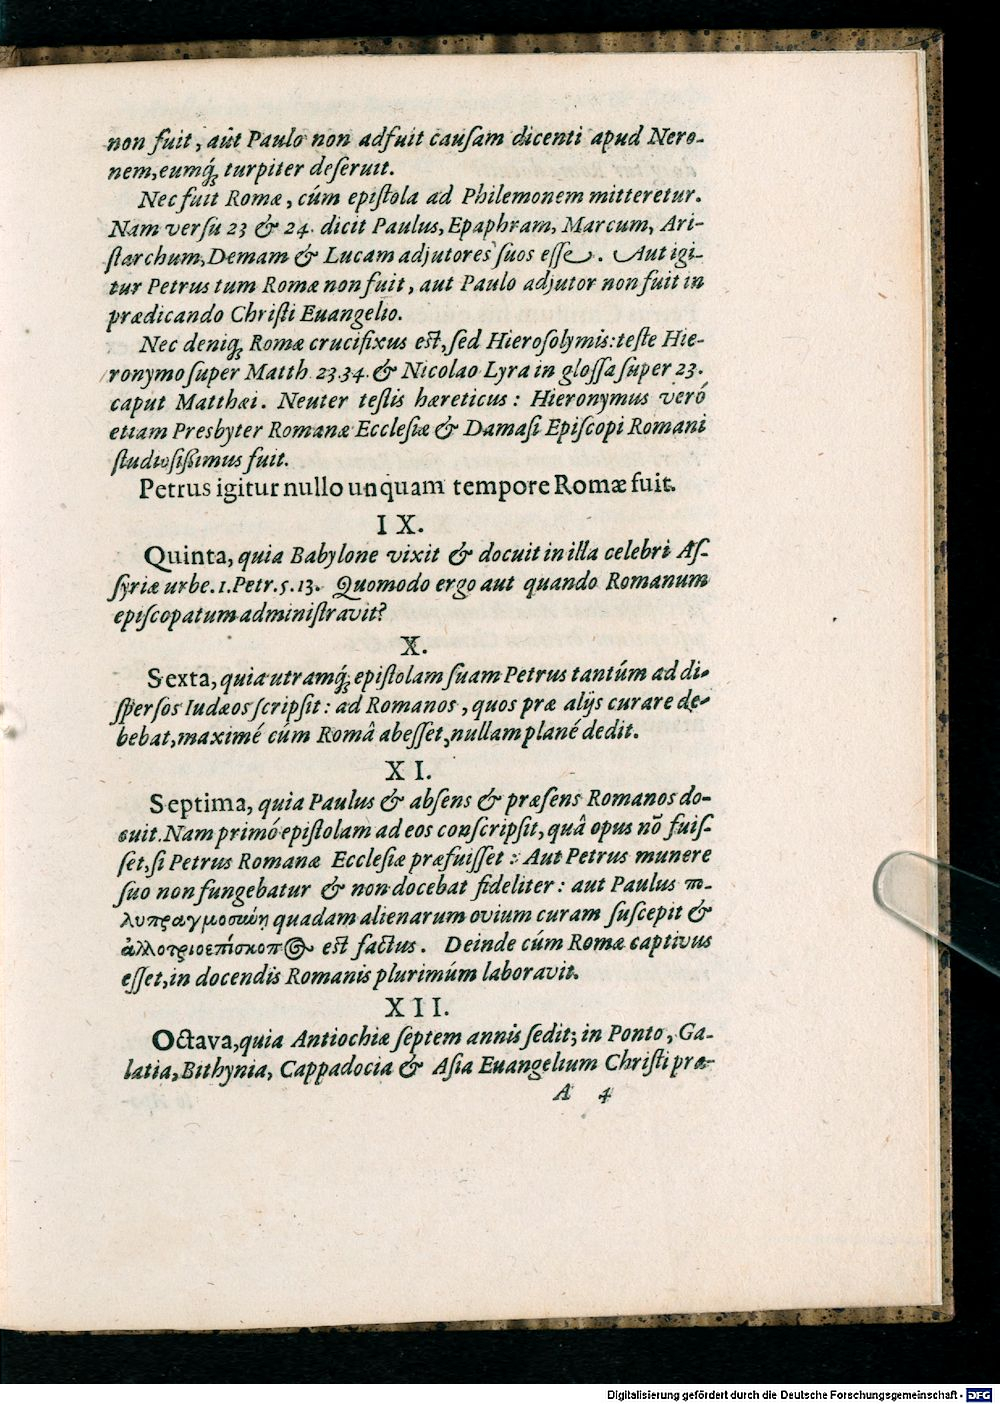 non fuit, aút Paulo non adfuit cauſam dicenti apud Nero-
nem, eumq́ꝫ turpiter deſeruit.
Nec fuit Romæ, cúm epiſtola ad Philemonem mitteretur.
Nam verſu 23 & 24. dicit Paulus, Epaphram, Marcum, Ari-
ſtarchum, Demam & Lucam adjutores ſuos eſſe. Aut igi-
tur Petrus tum Romæ non fuit, aut Paulo adjutor non fuit in
prædicando Chriſti Euangelio.
Nec deniqꝫ Romæ crucifixus eſt, ſed Hieroſolymis: teſte Hie-
ronymo ſuper Matth. 23.34. & Nicolao Lyra in gloſſa ſuper 23.
caput Matthæi. Neuter teſtis hæreticus: Hieronymus veró
etiam Presbyter Romanæ Eccleſiæ & Damaſi Epiſcopi Romani
ſtudioſißimus fuit.
Petrus igitur nullo unquam tempore Romæ fuit.
IX.
Quinta, quia Babylone vixit & docuit in illa celebri Aſ-
ſyriæ urbe. 1. Petr. 5. 13. Quomodo ergo aut quando Romanum
epiſcopatum adminiſtravit?
X.
Sexta, quia utramq́ꝫ epiſtolam ſuam Petrus tantúm ad di-
ſperſos Iudæos ſcripſit: ad Romanos, quos præ alijs curare de-
bebat, maximé cúm Româ abeſſet, nullam plané dedit.
XI.
Septima, quia Paulus & abſens & præſens Romanos do-
cuit. Nam primó epiſtolam ad eos conſcripſit, quâ opus nō fuiſ-
ſet, ſi Petrus Romanæ Eccleſiæ præfuiſſet: Aut Petrus munere
ſuo non fungebatur & non docebat fideliter: aut Paulus πο-
λυπραγμοσύνῃ quadam alienarum ovium curam ſuſcepit &
ἀλλοτριοεπίσκοπος eſt factus. Deinde cúm Romæ captivus
eſſet, in docendis Romanis plurimúm laboravit.
XII.
Octava, quia Antiochiæ ſeptem annis ſedit; in Ponto, Ga-
latia, Bithynia, Cappadocia & Aſia Euangelium Chriſti præ-
A 4
Digitalisierung gefördert durch die Deutsche Forschungsgemeinschaft - DFG